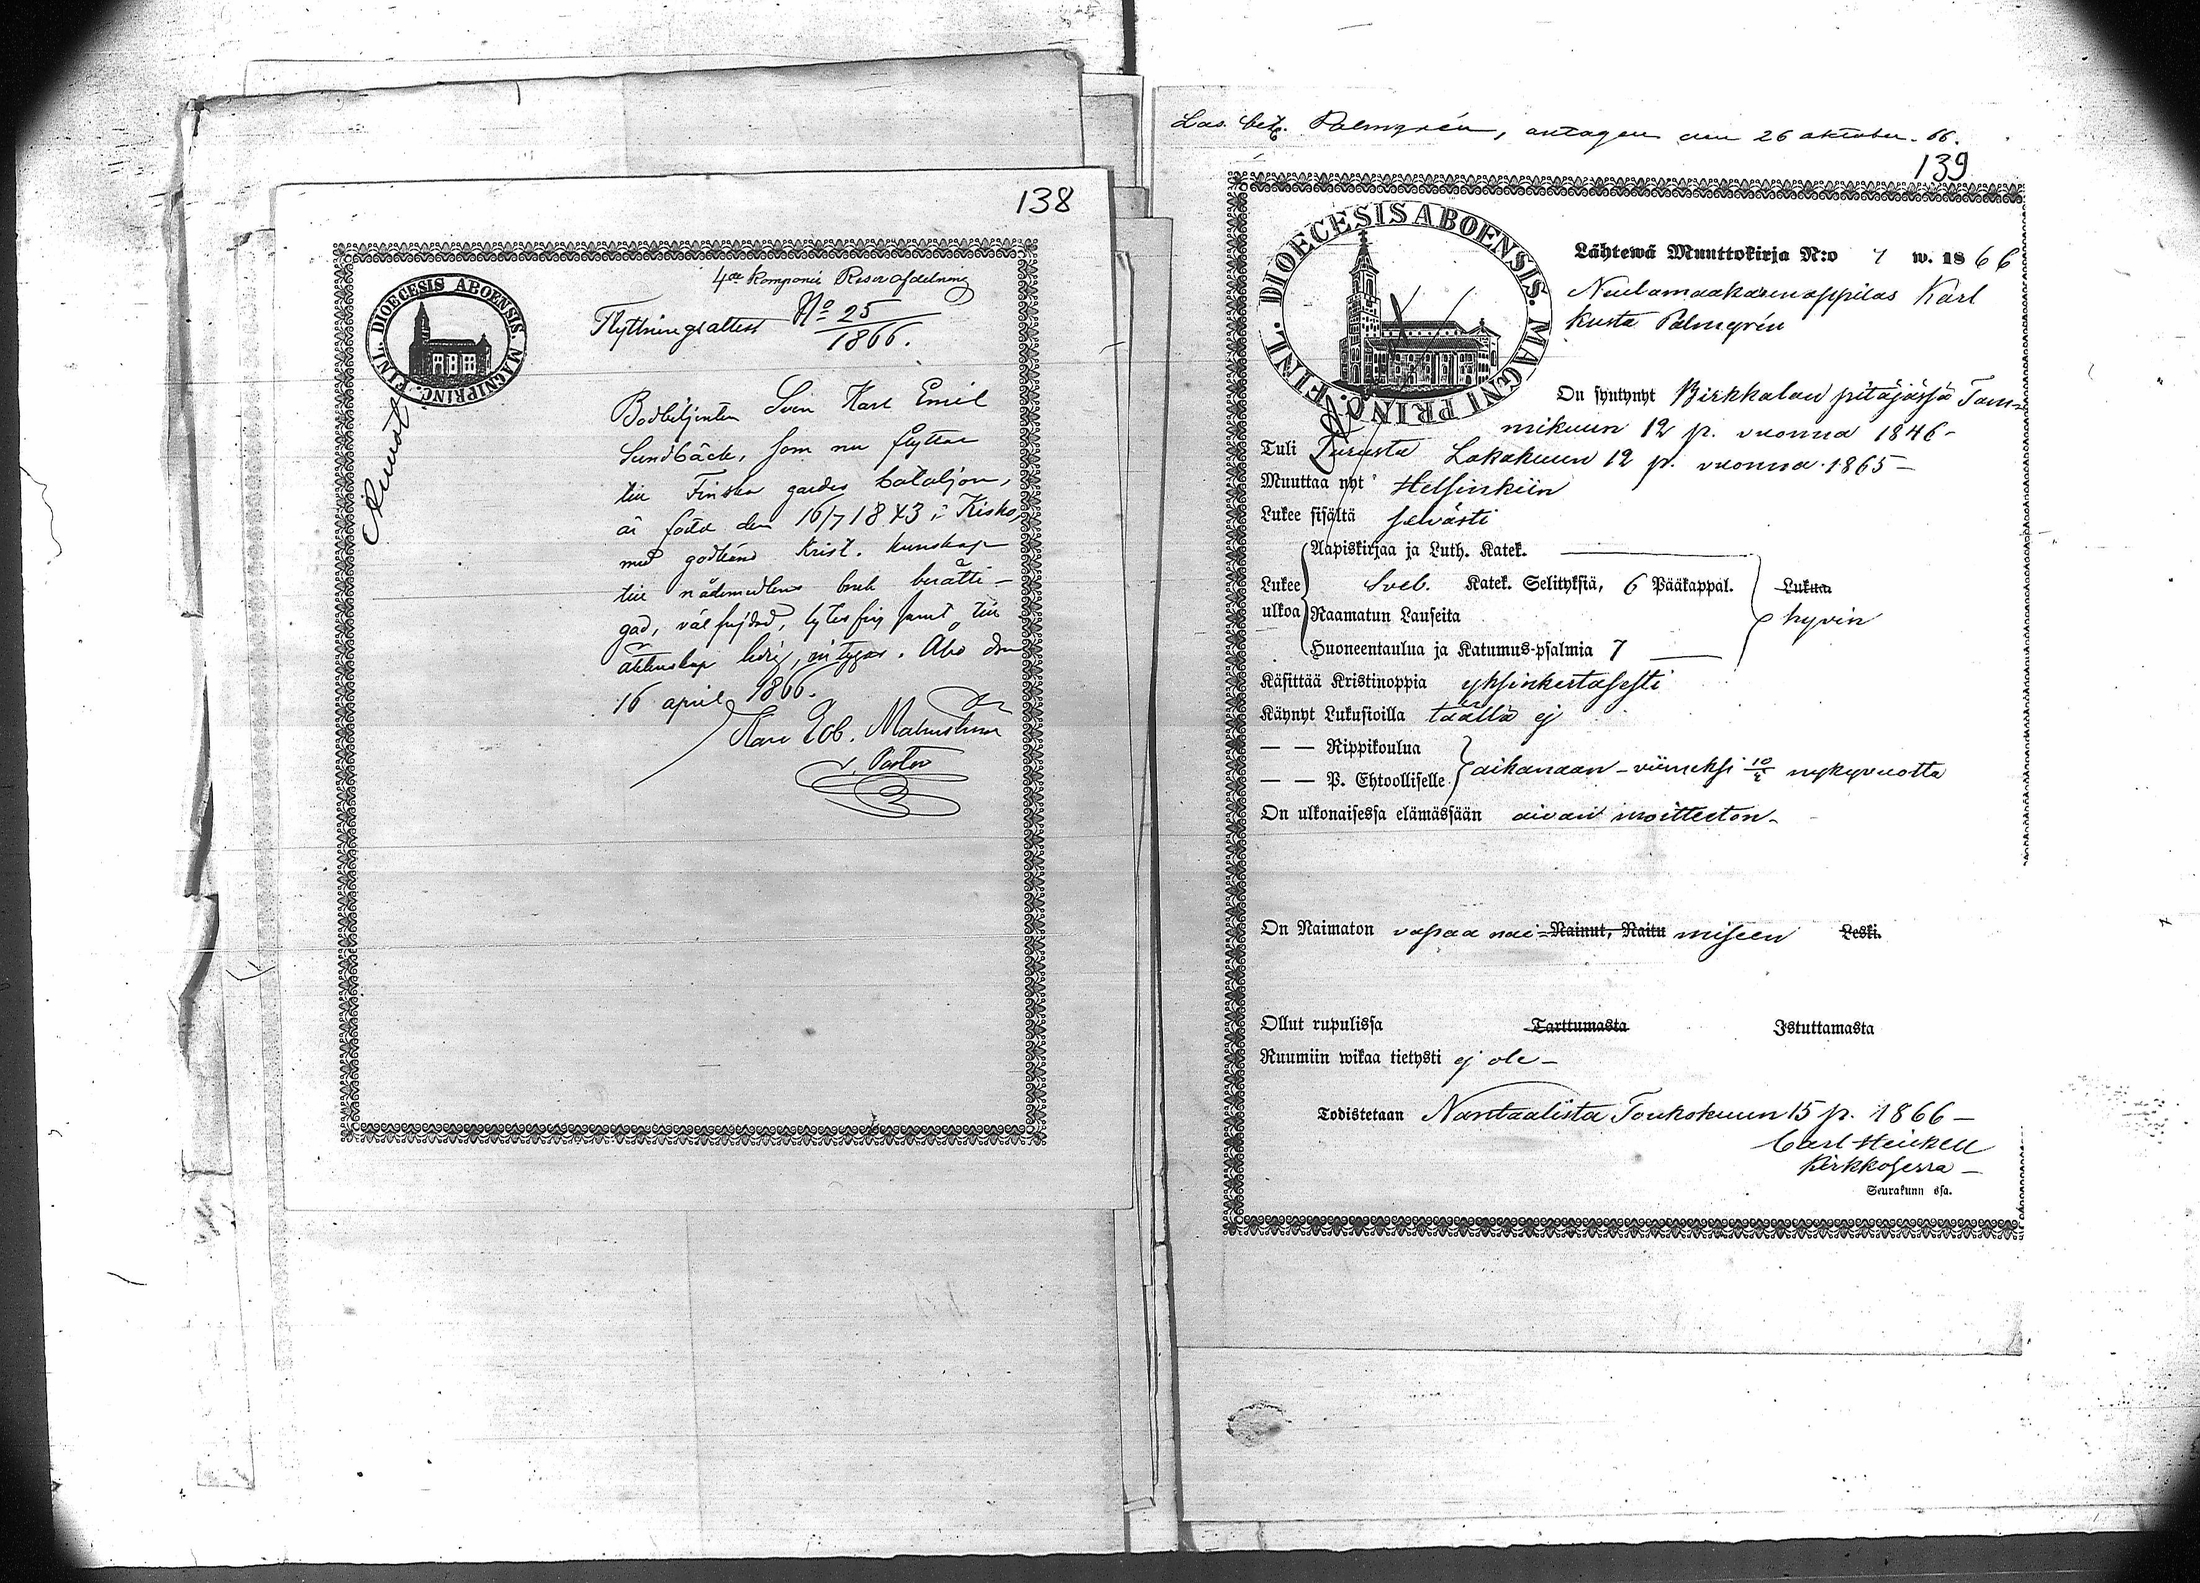 138
4de Kompanie Reservafdelning
FINL. DIOECESIS ABOENSIS. MAGNI PRINC.
Flyttningsattest No 25/1866.
Bodbetjenten Sven Karl Emil
Sundbäck, som nu flyttar
till Finska gardes bataljon,
är född den 16/7 1843 i Kisko,
med godkänd Krist. kunskap
till nådemedlens bruk berätti-
gad, väl frejdad, lytesfri samt till
äktenskap ledig, intygas. Åbo den
16 april 1866.
Karl Rob. Malmström
v. Pastor
Palmgrén, antagen den 26 oktober. 66.
139
FINL. DIOECESIS ABOENSIS. MAGNI PRINC.
Lähtewä Muuttokirja N:o 7 w. 1866
Neulamaakarinoppilas Karl
Kusta Palmgrén
On syntynyt Birkkalan pitäjässä Tam-
mikuun 12 p. vuonna 1846-
Tuli Turusta Lokakuun 12 p. vuonna 1865-
Muuttaa nyt Helsinkiin
Lukee sisältä selvästi
Aapiskirjaa ja Luth. Katek.
Lukee ulkoa Sveb. Katek. Selityksiä, 6 Pääkappal. Lukua
Raamatun Lauseita hyvin
Huoneentaulua ja Katumus-psalmia 7
Käsittää Kristinoppia yksinkertasesti
Käynyt Lukusioilla täällä ej
— — Rippikoulua
— — P. Ehtoolliselle aikanaan - viimeksi 10/5 nykyvuotta
On ulkonaisessa elämässään aivan moitteeton-
On Naimaton vapaa nai- Nainut, Naitu miseen Leski.
Ollut rupulissa Tarttumasta Istuttamasta
Ruumiin wikaa tietysti ej ole-
Todistetaan Nantaalista Toukokuun 15 p. 1866-
Carl Heikell
Kirkkoherra-
Seurakunn ssa.